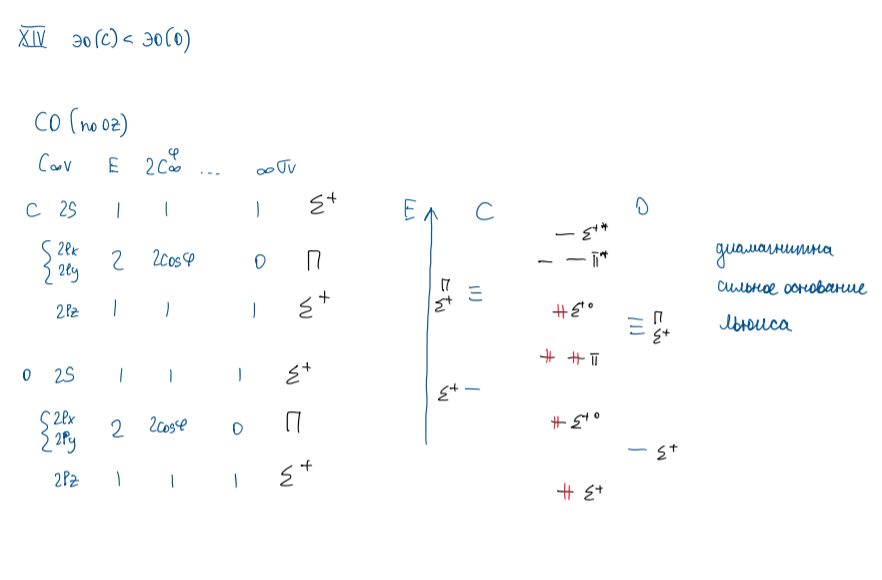 XIV ЭО(C) < ЭО(O)
CO (по OZ)
C∞v E 2C∞^φ ... ∞σv
C 2S 1 1 1 Σ⁺
{2Px 2Py 2 2cosφ 0 Π
2Pz 1 1 1 Σ⁺
O 2S 1 1 1 Σ⁺
{2Px 2Py 2 2cosφ 0 Π
2Pz 1 1 1 Σ⁺
E C O
Σ⁺*
Π*
Π
Σ⁺
Σ⁺⁰
Π
Σ⁺
Π
Σ⁺
Σ⁺⁰
Σ⁺
Σ⁺
диамагнитна
сильное основание
Льюиса